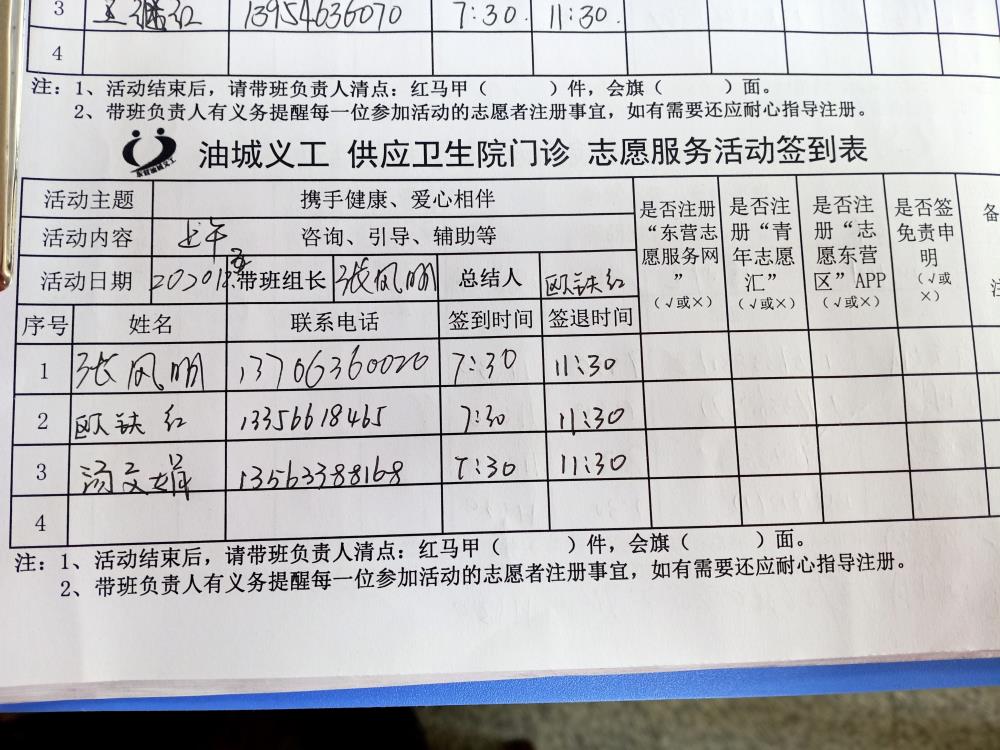 3 13954636070 7:30. 11:30.
4
注：1、活动结束后，请带班负责人清点：红马甲（ ）件，会旗（ ）面。
2、带班负责人有义务提醒每一位参加活动的志愿者注册事宜，如有需要还应耐心指导注册。
油城义工 供应卫生院门诊 志愿服务活动签到表
活动主题 携手健康、爱心相伴
活动内容 上午 咨询、引导、辅助等
活动日期 带班组长 张凤明 总结人 欧铁红
是否注册“东营志愿服务网”（√或×）
是否注册“青年志愿汇”（√或×）
是否注册“志愿东营区”APP（√或×）
是否签免责申明（√或×）
备注
序号 姓名 联系电话 签到时间 签退时间
1 张凤明 13706360020 7:30 11:30
2 欧铁红 13356618465 7:30 11:30
3 汤文娟 13563388168 7:30 11:30
4
注：1、活动结束后，请带班负责人清点：红马甲（ ）件，会旗（ ）面。
2、带班负责人有义务提醒每一位参加活动的志愿者注册事宜，如有需要还应耐心指导注册。